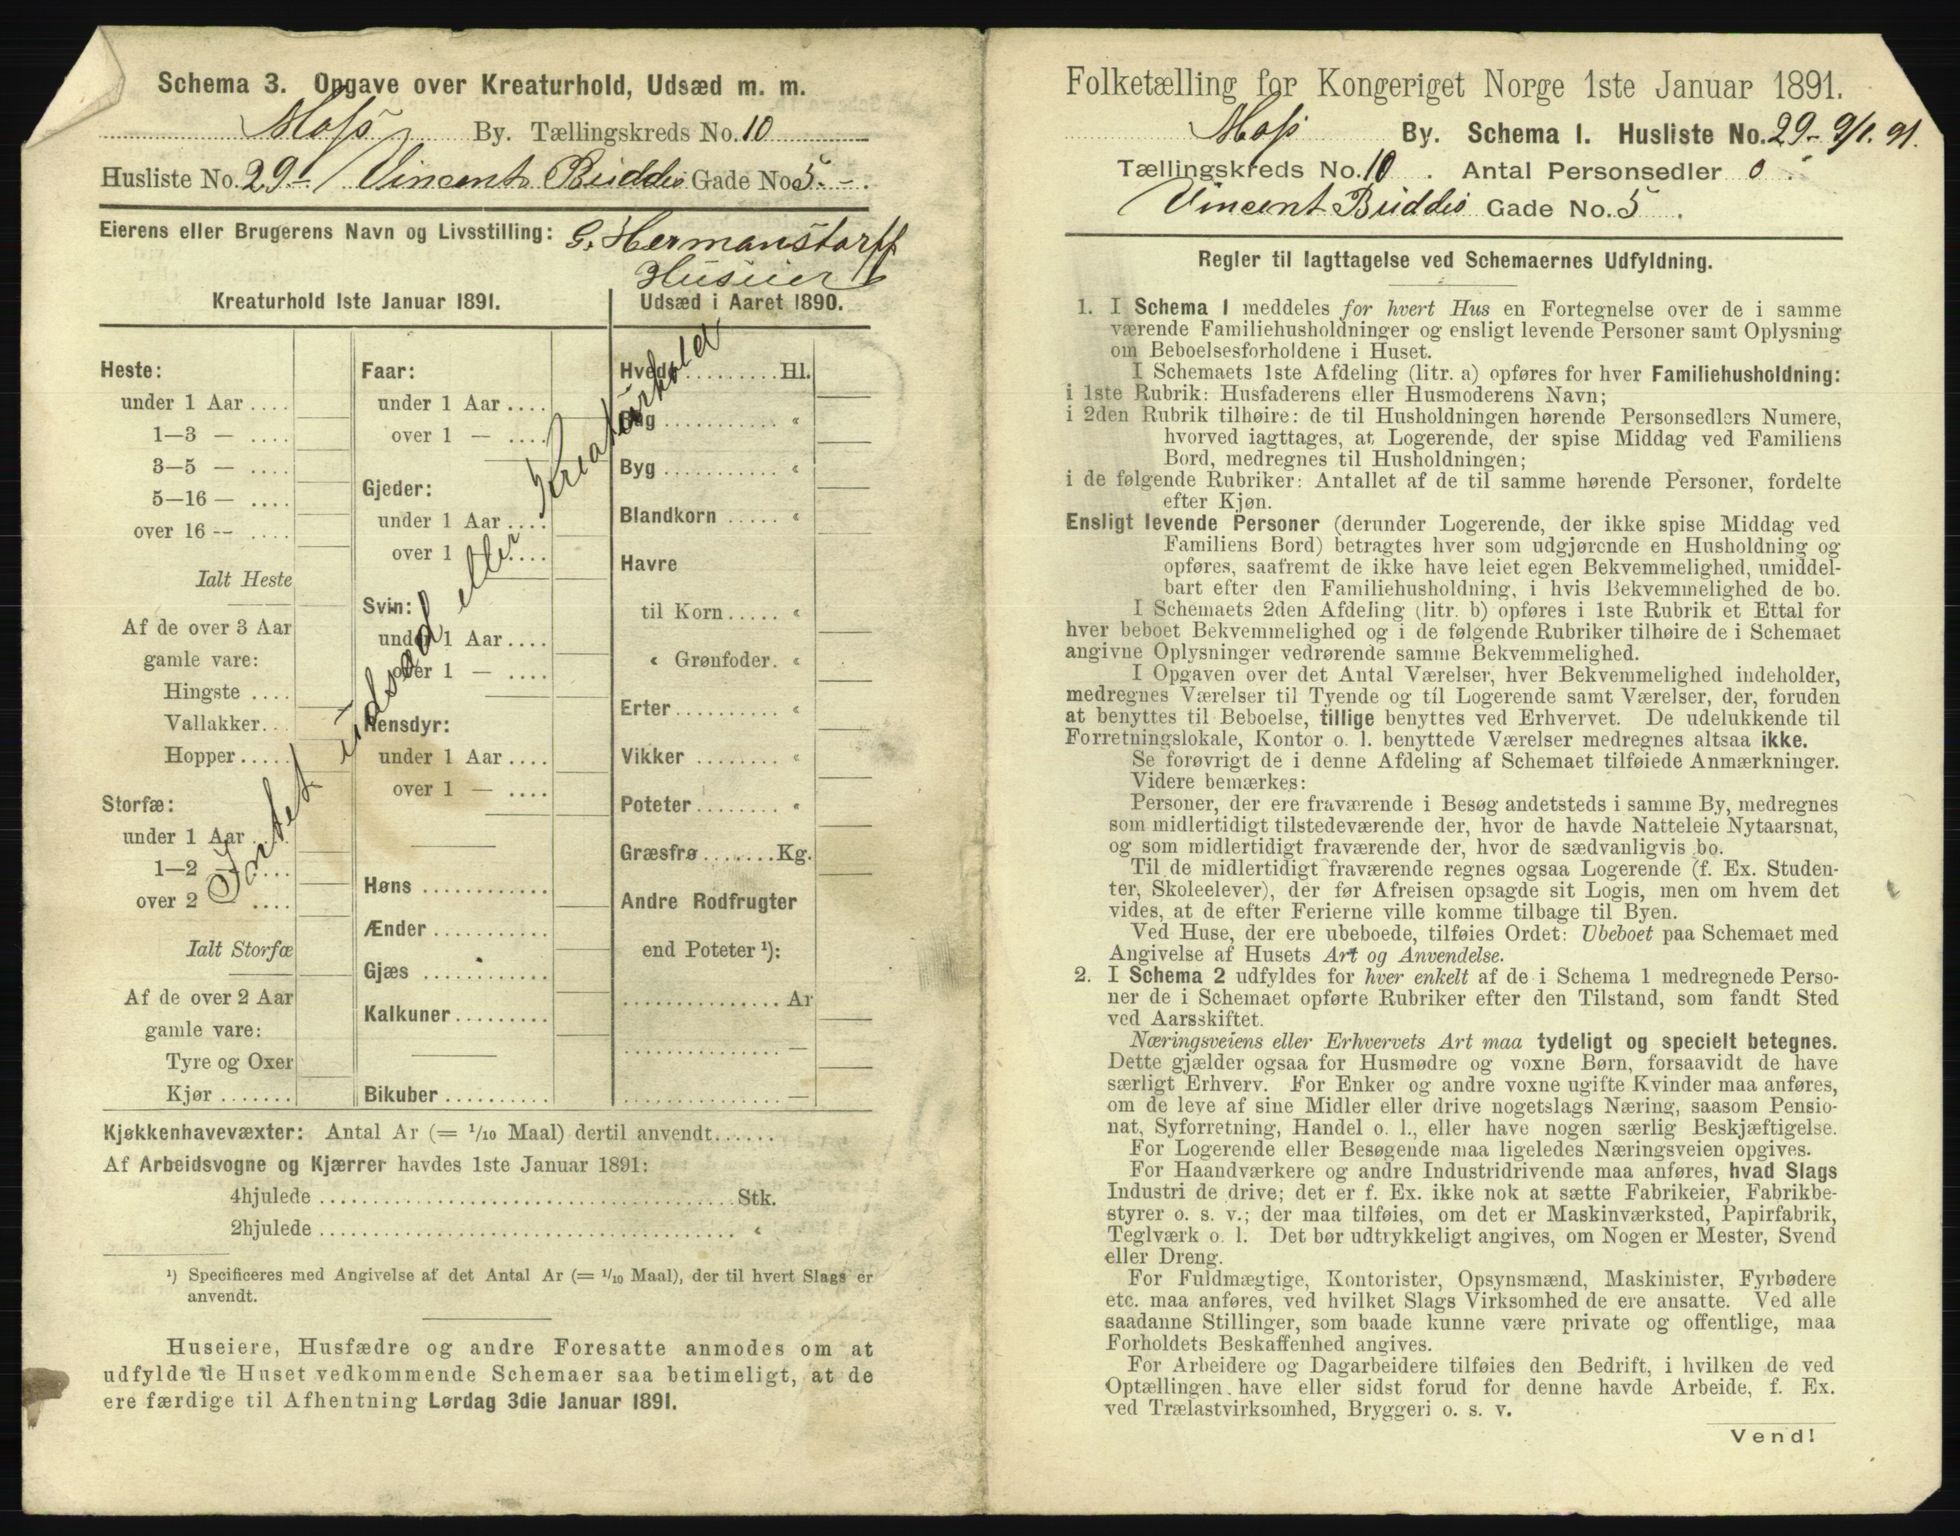 Schema 3. Opgave over Kreaturhold, Udsæd m. m.
Moss By. Tællingskreds No. 10
Husliste No. 29 - Vincent Buddes Gade No 5. -.
Eierens eller Brugerens Navn og Livsstilling: G. Hermanstorff
Huseier
Kreaturhold 1ste Januar 1891.
Heste:
under 1 Aar ....
1—3 — ....
3—5 — ....
5—16 — ....
over 16 — ....
Ialt Heste
Af de over 3 Aar
gamle vare:
Hingste ....
Vallakker...
Hopper.....
Storfæ:
under 1 Aar ....
1—2 — ....
over 2 ....
Ialt Storfæ
Af de over 2 Aar
gamle vare:
Tyre og Oxer
Kjør .......
Faar:
under 1 Aar ....
over 1 — ....
Gjeder:
under 1 Aar ....
over 1 — ....
Svin:
under 1 Aar ....
over 1 — ....
Rensdyr:
under 1 Aar ....
over 1 — ....
Høns ............
Ænder ...........
Gjæs ............
Kalkuner.........
Bikuber ..........
Intet udsæd eller Kreaturhold
Udsæd i Aaret 1890.
Hvede .......... Hl.
Rug ........... „
Byg ........... „
Blandkorn ..... „
Havre
til Korn ..... „
„ Grønfoder. „
Erter ......... „
Vikker ........ „
Poteter ........ „
Græsfrø ....... Kg.
Andre Rodfrugter
end Poteter ¹):
............... Ar
............... —
............... —
Kjøkkenhavevæxter: Antal Ar (= 1/10 Maal) dertil anvendt......
Af Arbeidsvogne og Kjærrer havdes 1ste Januar 1891:
4hjulede ........................................ Stk.
2hjulede ........................................ „
¹) Specificeres med Angivelse af det Antal Ar (= 1/10 Maal), der til hvert Slags er
anvendt.
Huseiere, Husfædre og andre Foresatte anmodes om at
udfylde de Huset vedkommende Schemaer saa betimeligt, at de
ere færdige til Afhentning Lørdag 3die Januar 1891.
Folketælling for Kongeriget Norge 1ste Januar 1891.
Moss By. Schema 1. Husliste No. 29 - 9/1. 91.
Tællingskreds No. 10 . Antal Personsedler 0 .
Vincent Buddes Gade No. 5 .
Regler til Iagttagelse ved Schemaernes Udfyldning.
1. I Schema 1 meddeles for hvert Hus en Fortegnelse over de i samme
værende Familiehusholdninger og ensligt levende Personer samt Oplysning
om Beboelsesforholdene i Huset.
I Schemaets 1ste Afdeling (litr. a) opføres for hver Familiehusholdning:
i 1ste Rubrik: Husfaderens eller Husmoderens Navn;
i 2den Rubrik tilhøire: de til Husholdningen hørende Personsedlers Numere,
hvorved iagttages, at Logerende, der spise Middag ved Familiens
Bord, medregnes til Husholdningen;
i de følgende Rubriker: Antallet af de til samme hørende Personer, fordelte
efter Kjøn.
Ensligt levende Personer (derunder Logerende, der ikke spise Middag ved
Familiens Bord) betragtes hver som udgjørende en Husholdning og
opføres, saafremt de ikke have leiet egen Bekvemmelighed, umiddel-
bart efter den Familiehusholdning, i hvis Bekvemmelighed de bo.
I Schemaets 2den Afdeling (litr. b) opføres i 1ste Rubrik et Ettal for
hver beboet Bekvemmelighed og i de følgende Rubriker tilhøire de i Schemaet
angivne Oplysninger vedrørende samme Bekvemmelighed.
I Opgaven over det Antal Værelser, hver Bekvemmelighed indeholder,
medregnes Værelser til Tyende og til Logerende samt Værelser, der, foruden
at benyttes til Beboelse, tillige benyttes ved Erhvervet. De udelukkende til
Forretningslokale, Kontor o. l. benyttede Værelser medregnes altsaa ikke.
Se forøvrigt de i denne Afdeling af Schemaet tilføiede Anmærkninger.
Videre bemærkes:
Personer, der ere fraværende i Besøg andetsteds i samme By, medregnes
som midlertidigt tilstedeværende der, hvor de havde Natteleie Nytaarsnat,
og som midlertidigt fraværende der, hvor de sædvanligvis bo.
Til de midlertidigt fraværende regnes ogsaa Logerende (f. Ex. Studen-
ter, Skoleelever), der før Afreisen opsagde sit Logis, men om hvem det
vides, at de efter Ferierne ville komme tilbage til Byen.
Ved Huse, der ere ubeboede, tilføies Ordet: Ubeboet paa Schemaet med
Angivelse af Husets Art og Anvendelse.
2. I Schema 2 udfyldes for hver enkelt af de i Schema 1 medregnede Perso-
ner de i Schemaet opførte Rubriker efter den Tilstand, som fandt Sted
ved Aarsskiftet.
Næringsveiens eller Erhvervets Art maa tydeligt og specielt betegnes.
Dette gjælder ogsaa for Husmødre og voxne Børn, forsaavidt de have
særligt Erhverv. For Enker og andre voxne ugifte Kvinder maa anføres,
om de leve af sine Midler eller drive nogetslags Næring, saasom Pensio-
nat, Syforretning, Handel o. l., eller have nogen særlig Beskjæftigelse.
For Logerende eller Besøgende maa ligeledes Næringsveien opgives.
For Haandværkere og andre Industridrivende maa anføres, hvad Slags
Industri de drive; det er f. Ex. ikke nok at sætte Fabrikeier, Fabrikbe-
styrer o. s. v.; der maa tilføies, om det er Maskinværksted, Papirfabrik,
Teglværk o. l. Det bør udtrykkeligt angives, om Nogen er Mester, Svend
eller Dreng.
For Fuldmægtige, Kontorister, Opsynsmænd, Maskinister, Fyrbødere
etc. maa anføres, ved hvilket Slags Virksomhed de ere ansatte. Ved alle
saadanne Stillinger, som baade kunne være private og offentlige, maa
Forholdets Beskaffenhed angives.
For Arbeidere og Dagarbeidere tilføies den Bedrift, i hvilken de ved
Optællingen have eller sidst forud for denne havde Arbeide, f. Ex.
ved Trælastvirksomhed, Bryggeri o. s. v.
Vend!